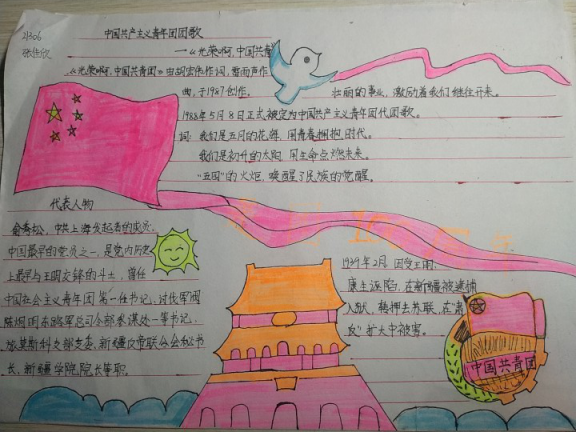 21306
张佳欣
中国共产主义青年团团歌
—《光荣啊,中国共青
《光荣啊,中国共青团》由胡宏伟作词,雷雨声作
曲,于1987创作。
壮丽的事业,激励着我们继往开来。
1988年5月8日正式被定为中国共产主义青年团代团歌。
词:我们是五月的花海,用青春拥抱时代。
我们是初升的太阳,用生命点燃未来。
"五四"的火炬,唤醒了民族的觉醒。
代表人物
俞秀松,中共上海发起者的成员,
中国最早的党员之一,是党内历史
上最早与王明交锋的斗士,曾任
中国社会主义青年团第一任书记、讨伐军阀
陈炯明东路军总司令部参谋处一等书记、
地莫斯科支部支委、新疆反帝联合会秘书
长、新疆学院院长等职。
1939年2月,因受王明、
康生诬陷,在新疆被逮捕
入狱,转押去苏联,在"肃
反"扩大中被害。
中国共青团